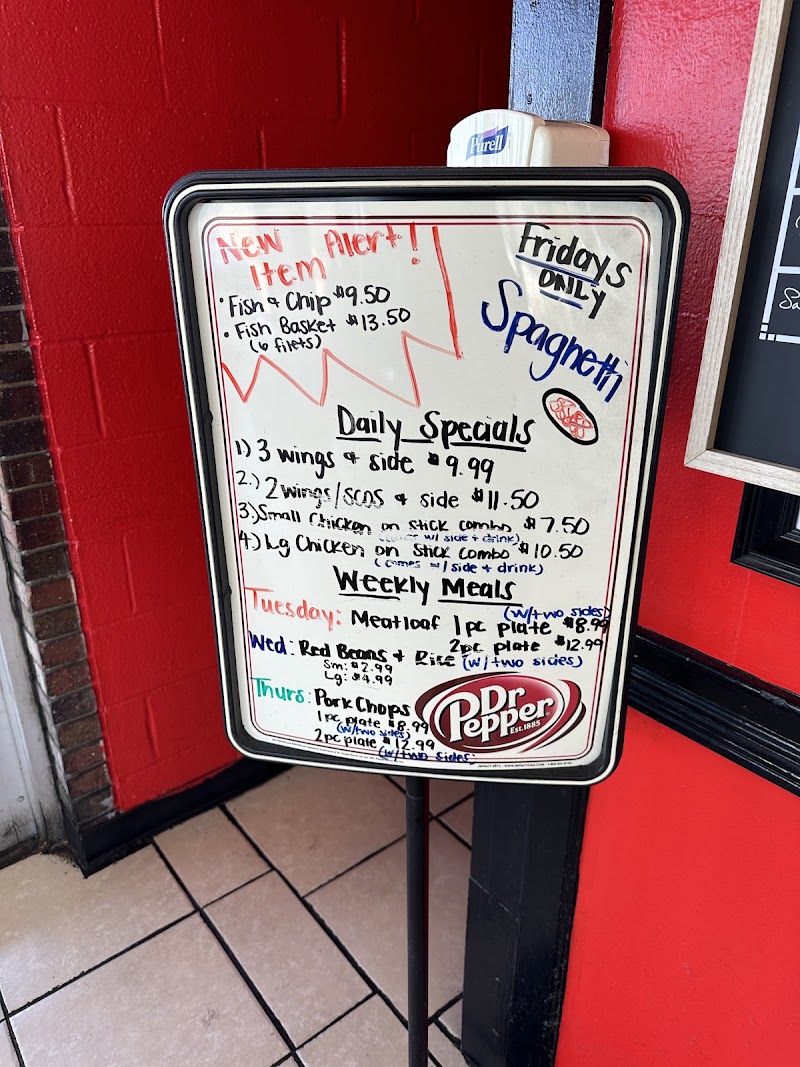 Purell
New Alert!
Item
• Fish & Chip $9.50
• Fish Basket $13.50
(6 filets)
Fridays
ONLY
Spaghetti
Daily Specials
1) 3 wings & side $9.99
2.) 2 wings/SCOS & side $11.50
3.) Small Chicken on stick combo $7.50
w/ side + drink)
4.) Lg Chicken on stick combo $10.50
(comes w/ side + drink)
Weekly Meals
(w/two sides)
Tuesday: Meatloaf 1pc plate $8.99
2pc plate $12.99
Wed: Red Beans + Rice (w/two sides)
Sm: $2.99
Lg: $4.99
Thurs: Pork Chops
1pc plate $8.99
(w/two sides)
2pc plate $12.99
(w/two sides)
Dr
Pepper
Est. 1885